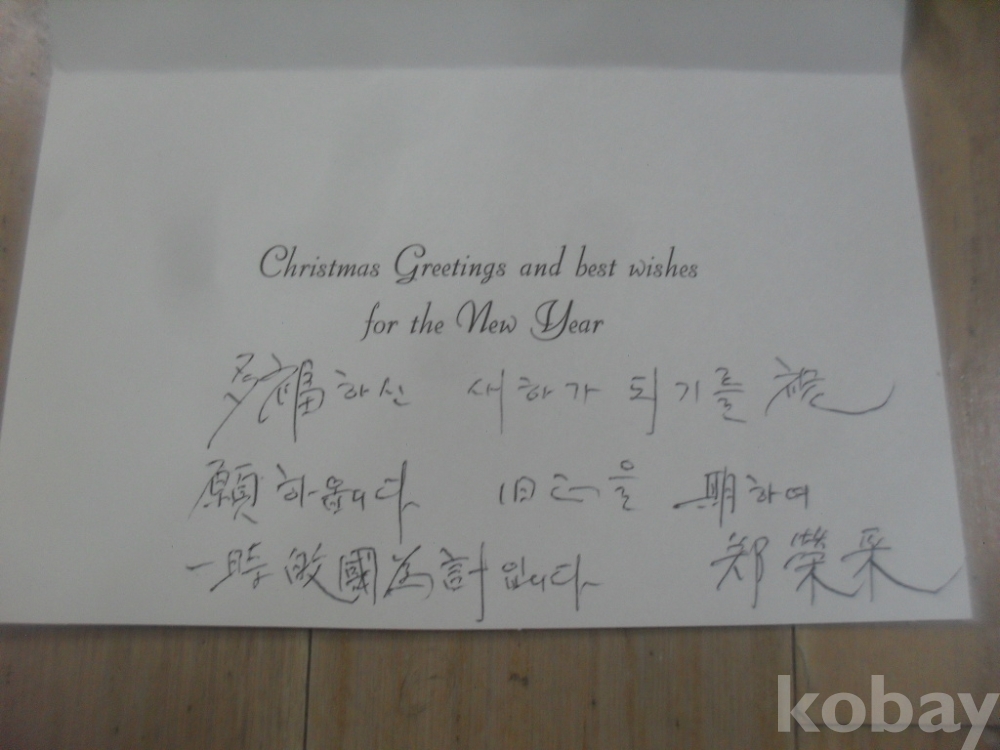 Christmas Greetings and best wishes
for the New Year
多福하신 새하가 되기를 祝
願하옵니다 旧正을 期하여
一時 國為計입니다 鄭榮采
kobay